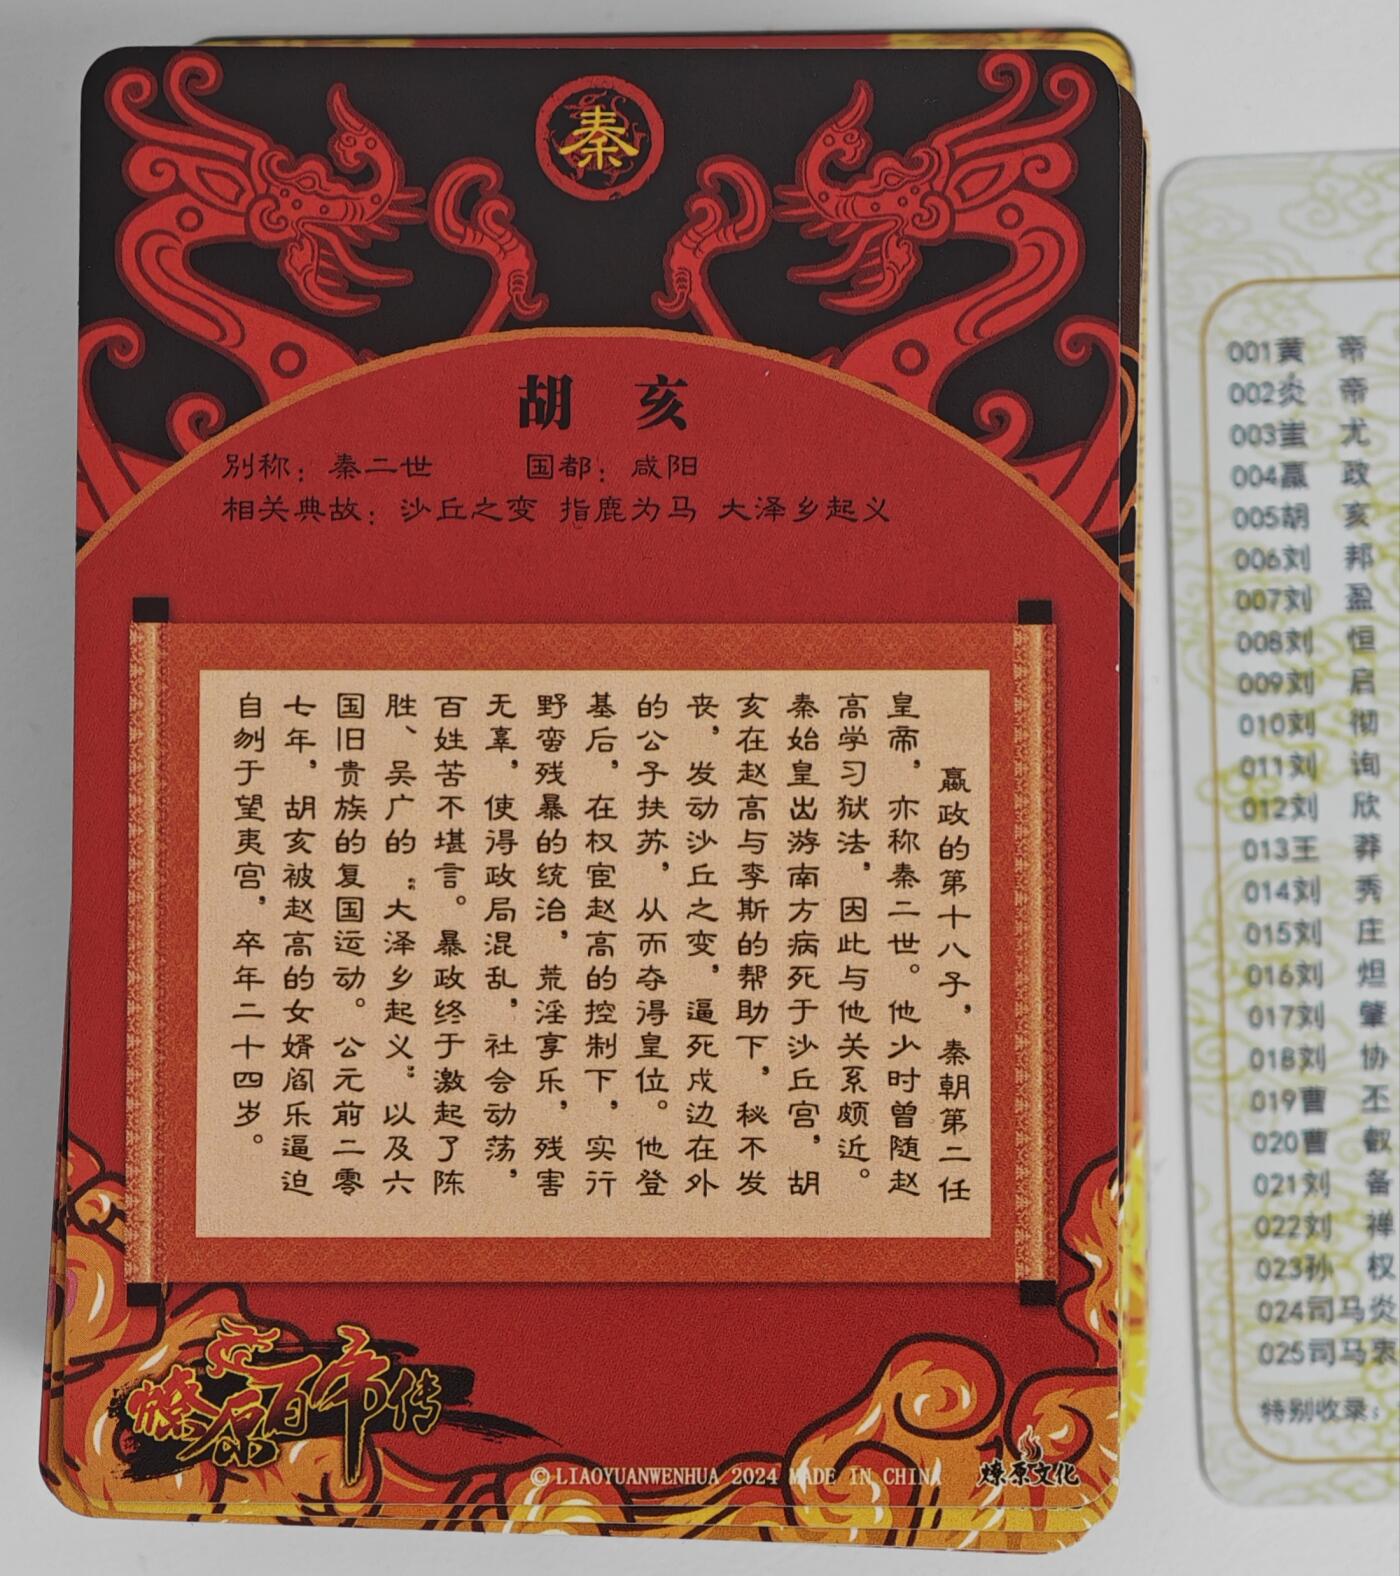 秦
胡 亥
别称：秦二世 国都：咸阳
相关典故：沙丘之变 指鹿为马 大泽乡起义
嬴政的第十八子，秦朝第二任
皇帝，亦称秦二世。他少时曾随赵
高学习狱法，因此与他关系颇近。
秦始皇出游南方病死于沙丘宫，胡
亥在赵高与李斯的帮助下，秘不发
丧，发动沙丘之变，逼死戍边在外
的公子扶苏，从而夺得皇位。他登
基后，在权宦赵高的控制下，实行
野蛮残暴的统治，荒淫享乐，残害
无辜，使得政局混乱，社会动荡，
百姓苦不堪言。暴政终于激起了陈
胜、吴广的“大泽乡起义”以及六
国旧贵族的复国运动。公元前二零
七年，胡亥被赵高的女婿阎乐逼迫
自刎于望夷宫，卒年二十四岁。
燎原百帝传
©LIAOYUANWENHUA 2024 MADE IN CHINA
燎原文化
001黄 帝
002炎 帝
003蚩 尤
004嬴 政
005胡 亥
006刘 邦
007刘 盈
008刘 恒
009刘 启
010刘 彻
011刘 询
012刘 欣
013王 莽
014刘 秀
015刘 庄
016刘 炟
017刘 肇
018刘 协
019曹 丕
020曹 叡
021刘 备
022刘 禅
023孙 权
024司马炎
025司马衷
特别收录：